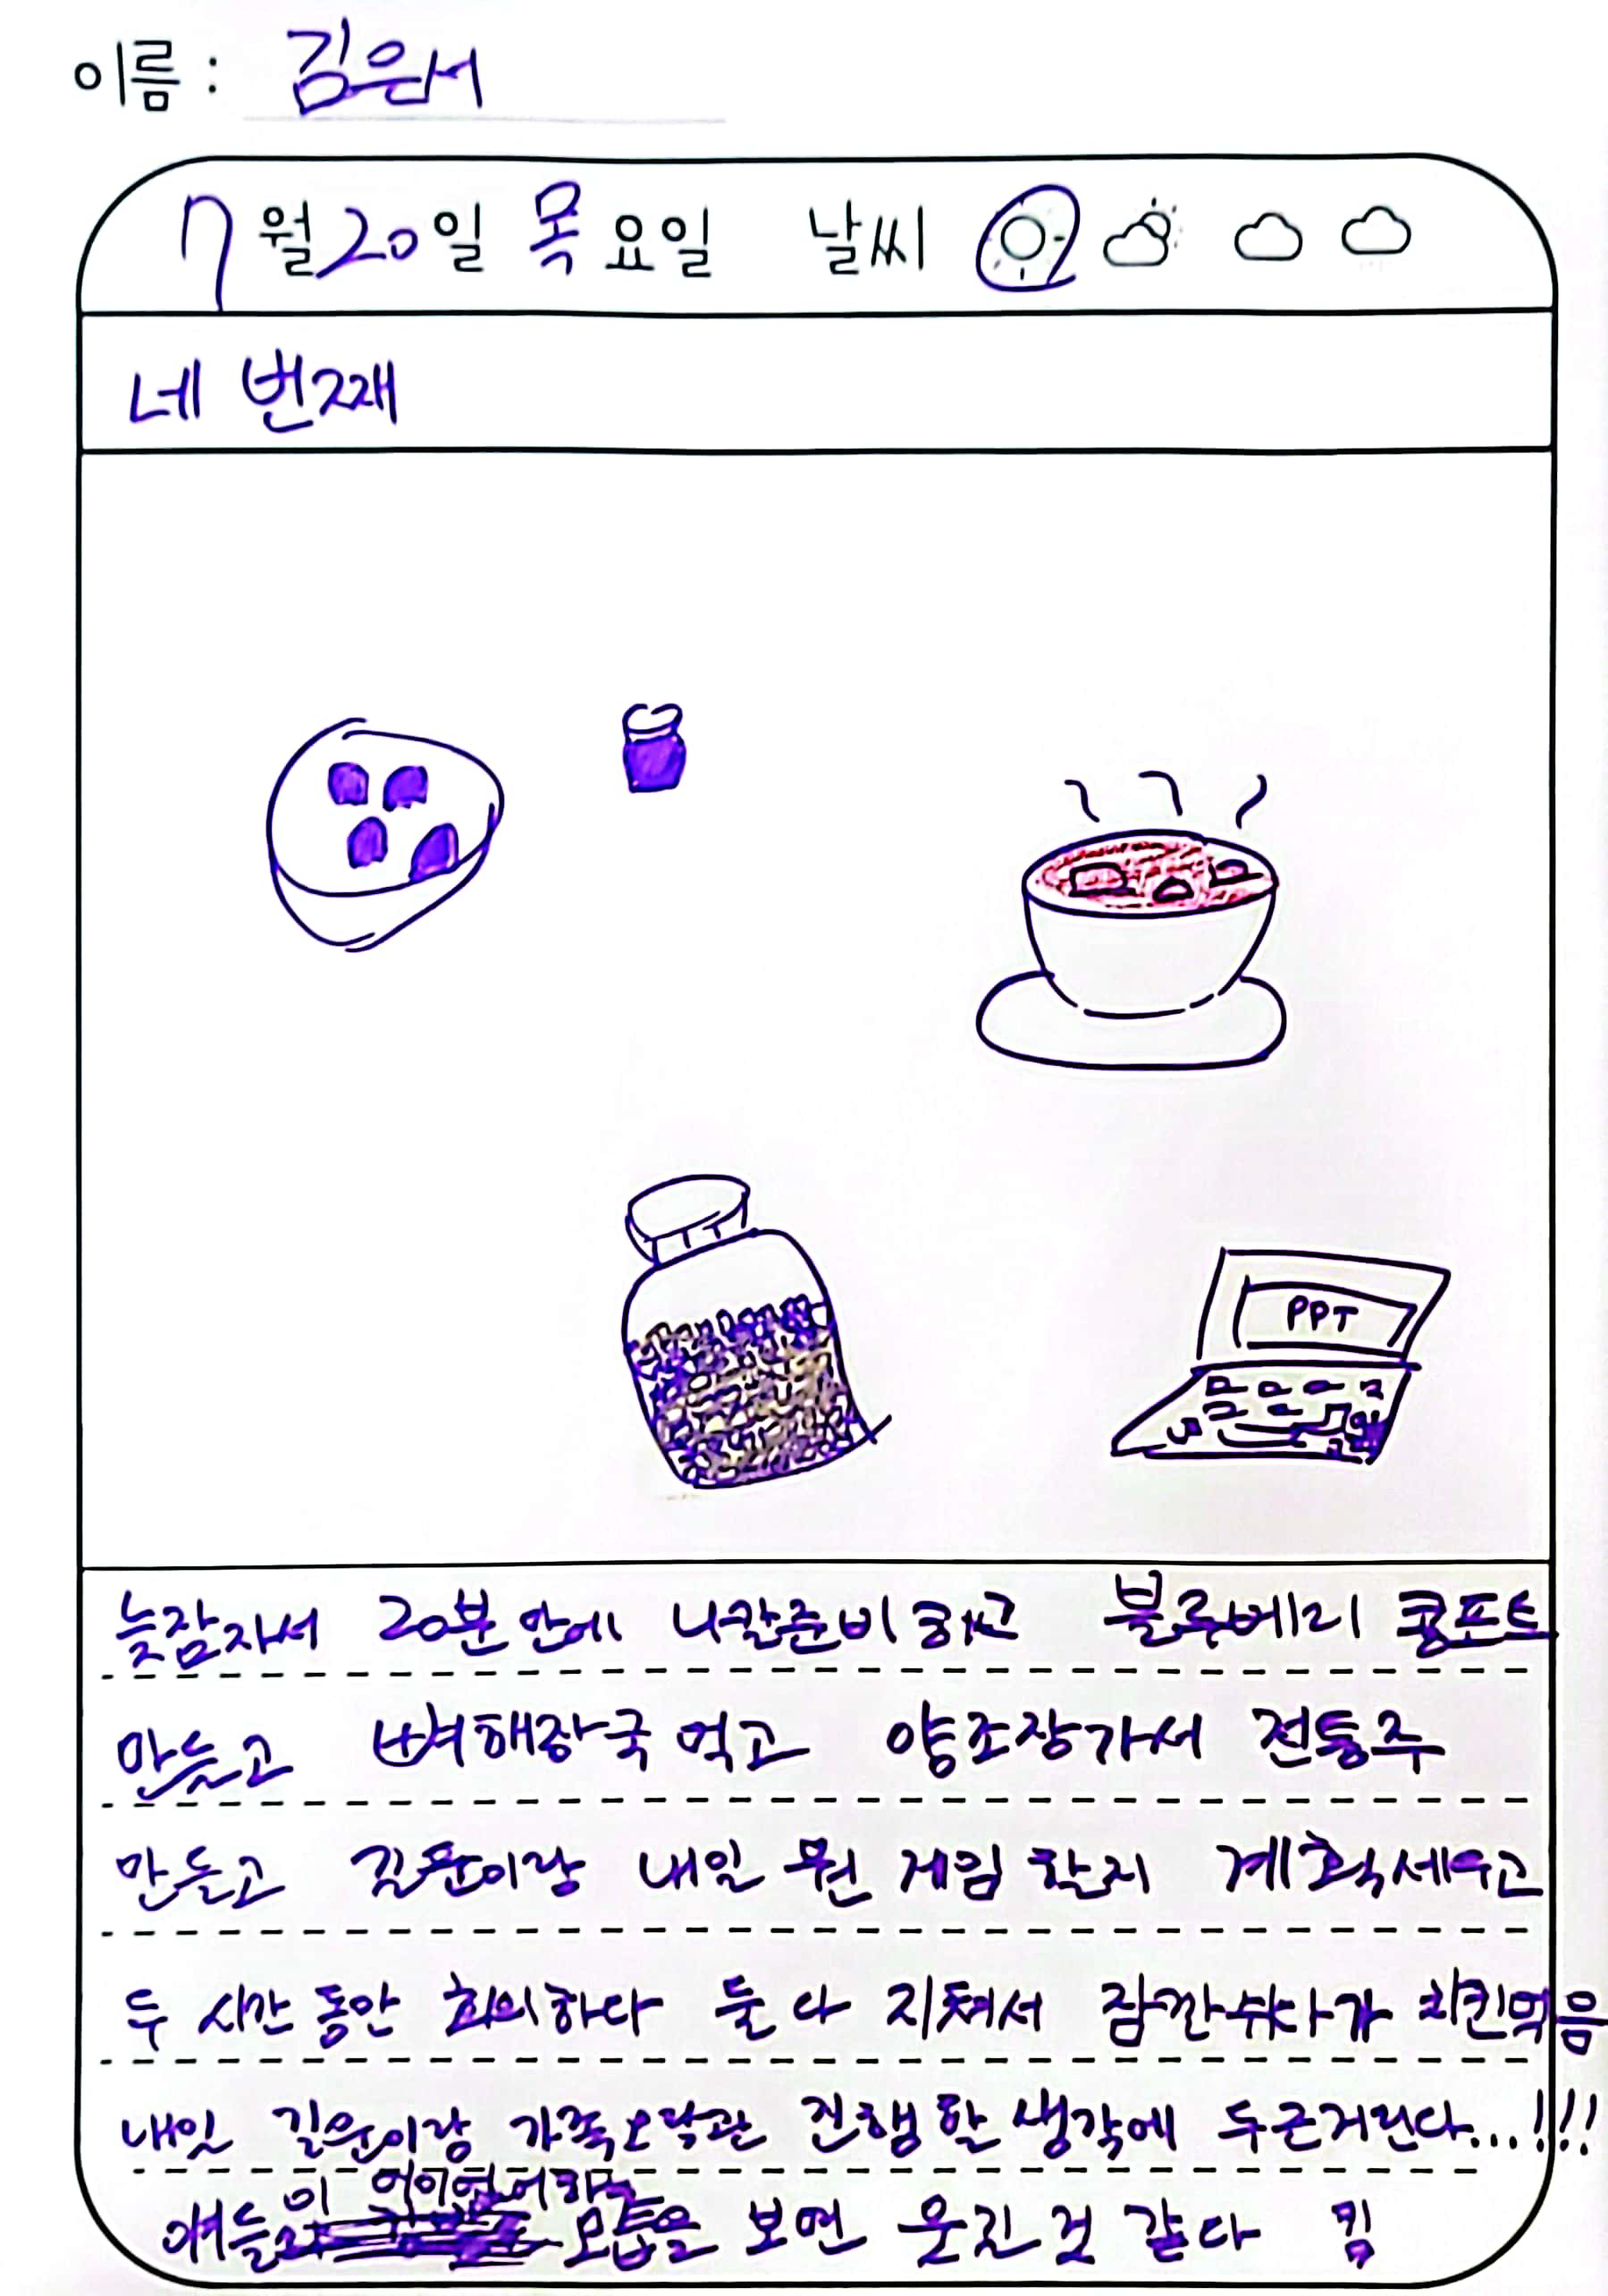 이름 : 김은서
7월 20일 목요일 날씨
네 번째
PPT
늦잠자서 20분안에 나갈준비하고 블루베리 콩포트
만들고 뼈해장국 먹고 양조장가서 전통주
만들고 길운이랑 내일 뭔 게임 할지 계획세우고
두 시간 동안 회의하다 둘 다 지쳐서 잠깐쉬다가 치킨먹음
내일 길운이랑 가족오락관 진행할 생각에 두근거린다...!!!
애들이 어이없어하는 모습을 보면 웃긴것 같다 킼